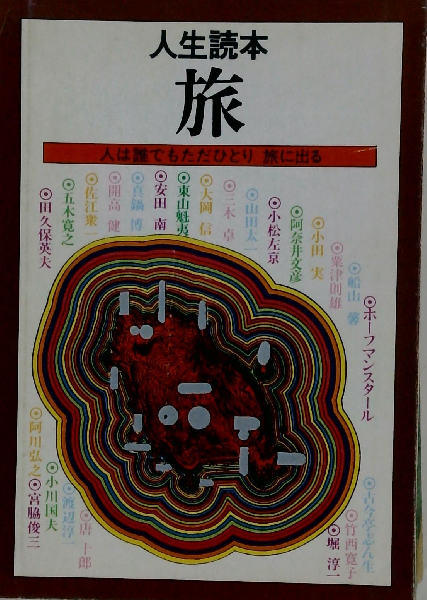 人生読本
旅
人は誰でもただひとり 旅に出る
◉ホーフマンスタール
◉船山 馨
◉粟津則雄
◉小田 実
◉阿奈井文彦
◉小松左京
◉山田太一
◉三木 卓
◉大岡 信
◉東山魁夷
◉安田 南
◉真鍋 博
◉開高 健
◉佐江衆一
◉五木寛之
◉田久保英夫
◉古今亭志ん生
◉竹西寛子
◉堀 淳一
◉唐 十郎
◉渡辺淳一
◉小川国夫
◉宮脇俊三
◉阿川弘之